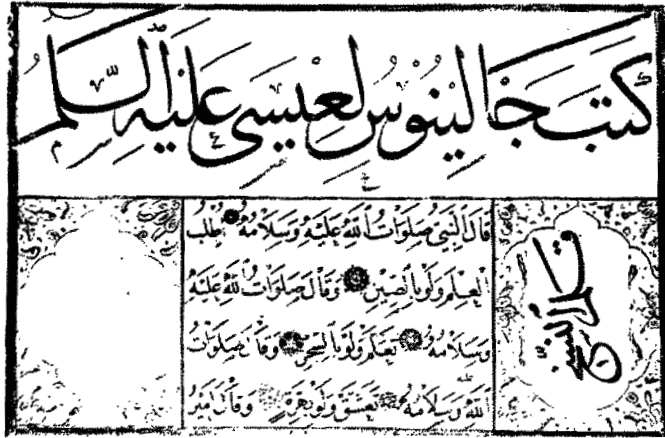 كتب جالينوس لعيسى عليه السلم
قال النبي صلوات الله عليه وسلامه طلب
العلم ولو بالصين وقال صلوات الله عليه
وسلامه تعلم ولو بالسحر وقال صلوات
الله وسلامه تعشق ولو بهرة وقال امير